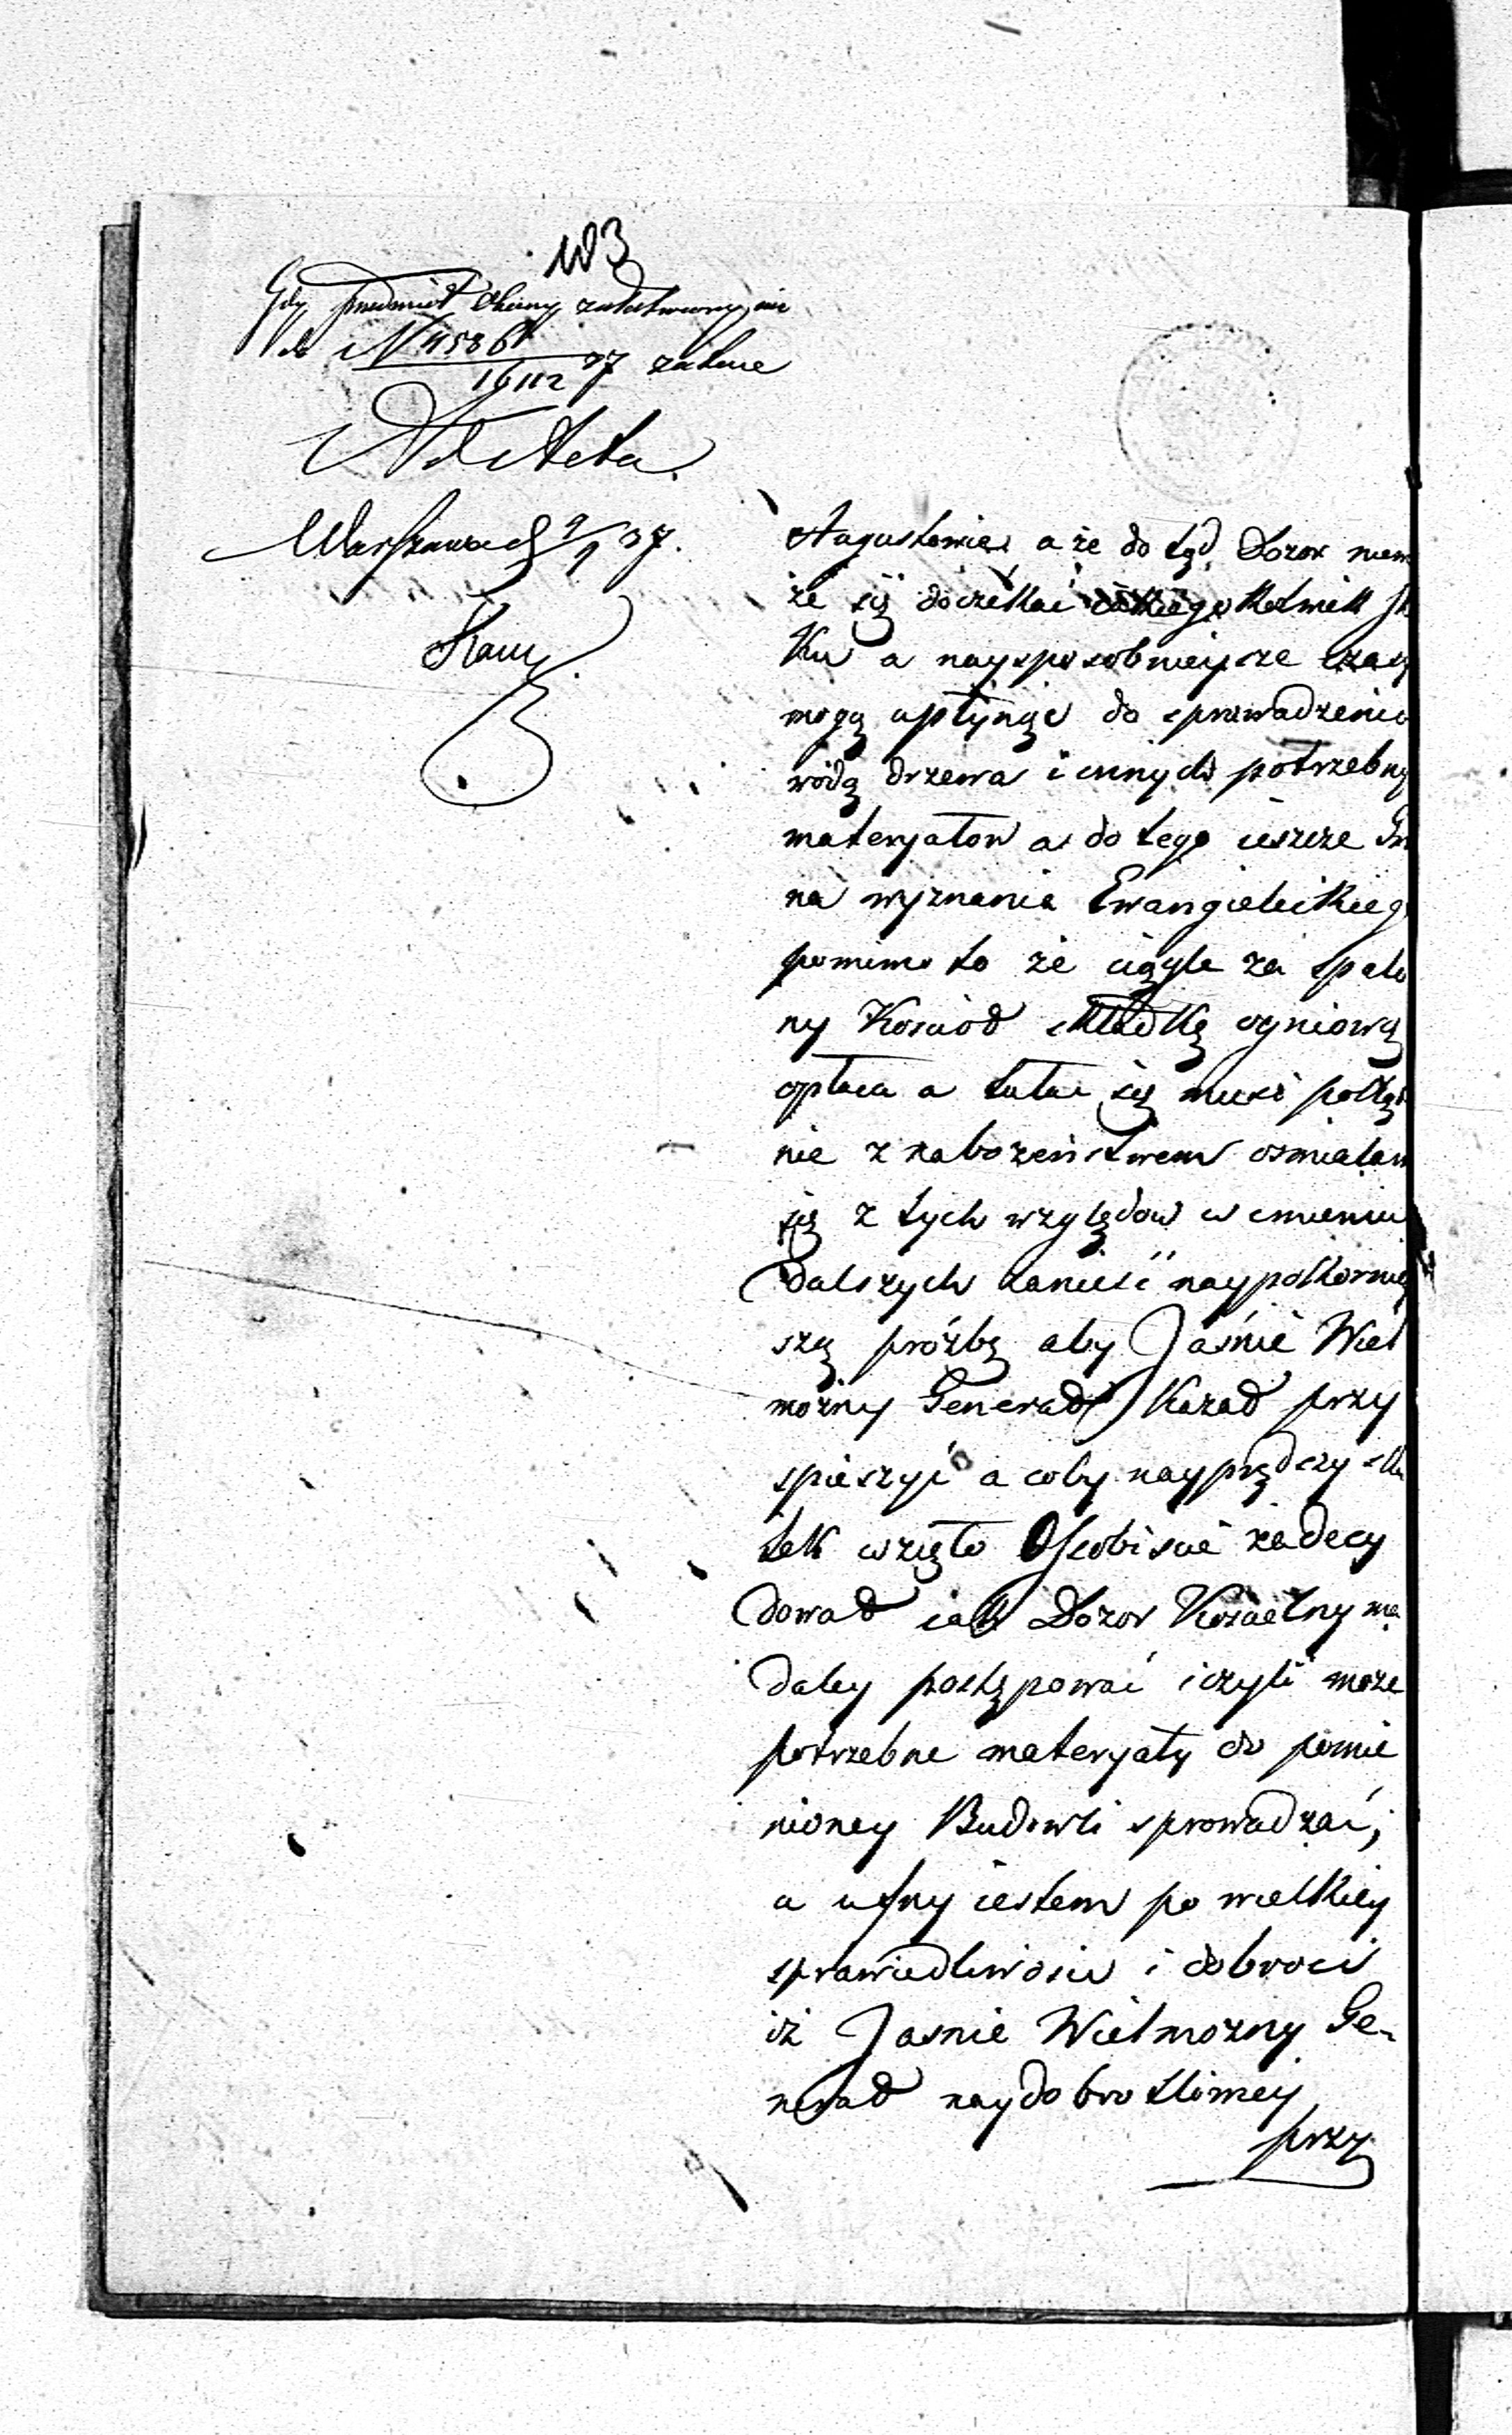 103
Gdy przedmiot
do N 4586
16112 37
Ad Acta.
Warszawa d 9/9 37.
Augustowie, a że do tąd Dozor niem
że się doczekać kolwiek sk
ku a naysposobnieysze czasy
mogą upłynąć do sprowadzenia
wodą drzewa i innych potrzebny
materjałow a do tego ieszcze Gm
na wyznania Ewangielickieg
pomimo to że ciągle za spalo
ny Koscioł składkę ogniową
opłaca a tułać się musi pokąt
nie z nabożeństwem osmielam
się z tych względow w imieniu
dalszych zanieść naypokorniey
szą próźbę aby Jaśnie Wiel
możny Generał Kazał przy
spieszyć a coby nayprędszy sku
tek wzięło Osobiscie zadecy
dował iak Dozor Koscielny ma
daley postępować i czyli może
potrzebne materyały do pomie
nioney Budowli sprowadzać,
a ufny iestem po wielkiey
sprawiedliwosci i dobroci
iż Jasnie Wielmozny Ge-
nerał naydobrotliwiey
przy